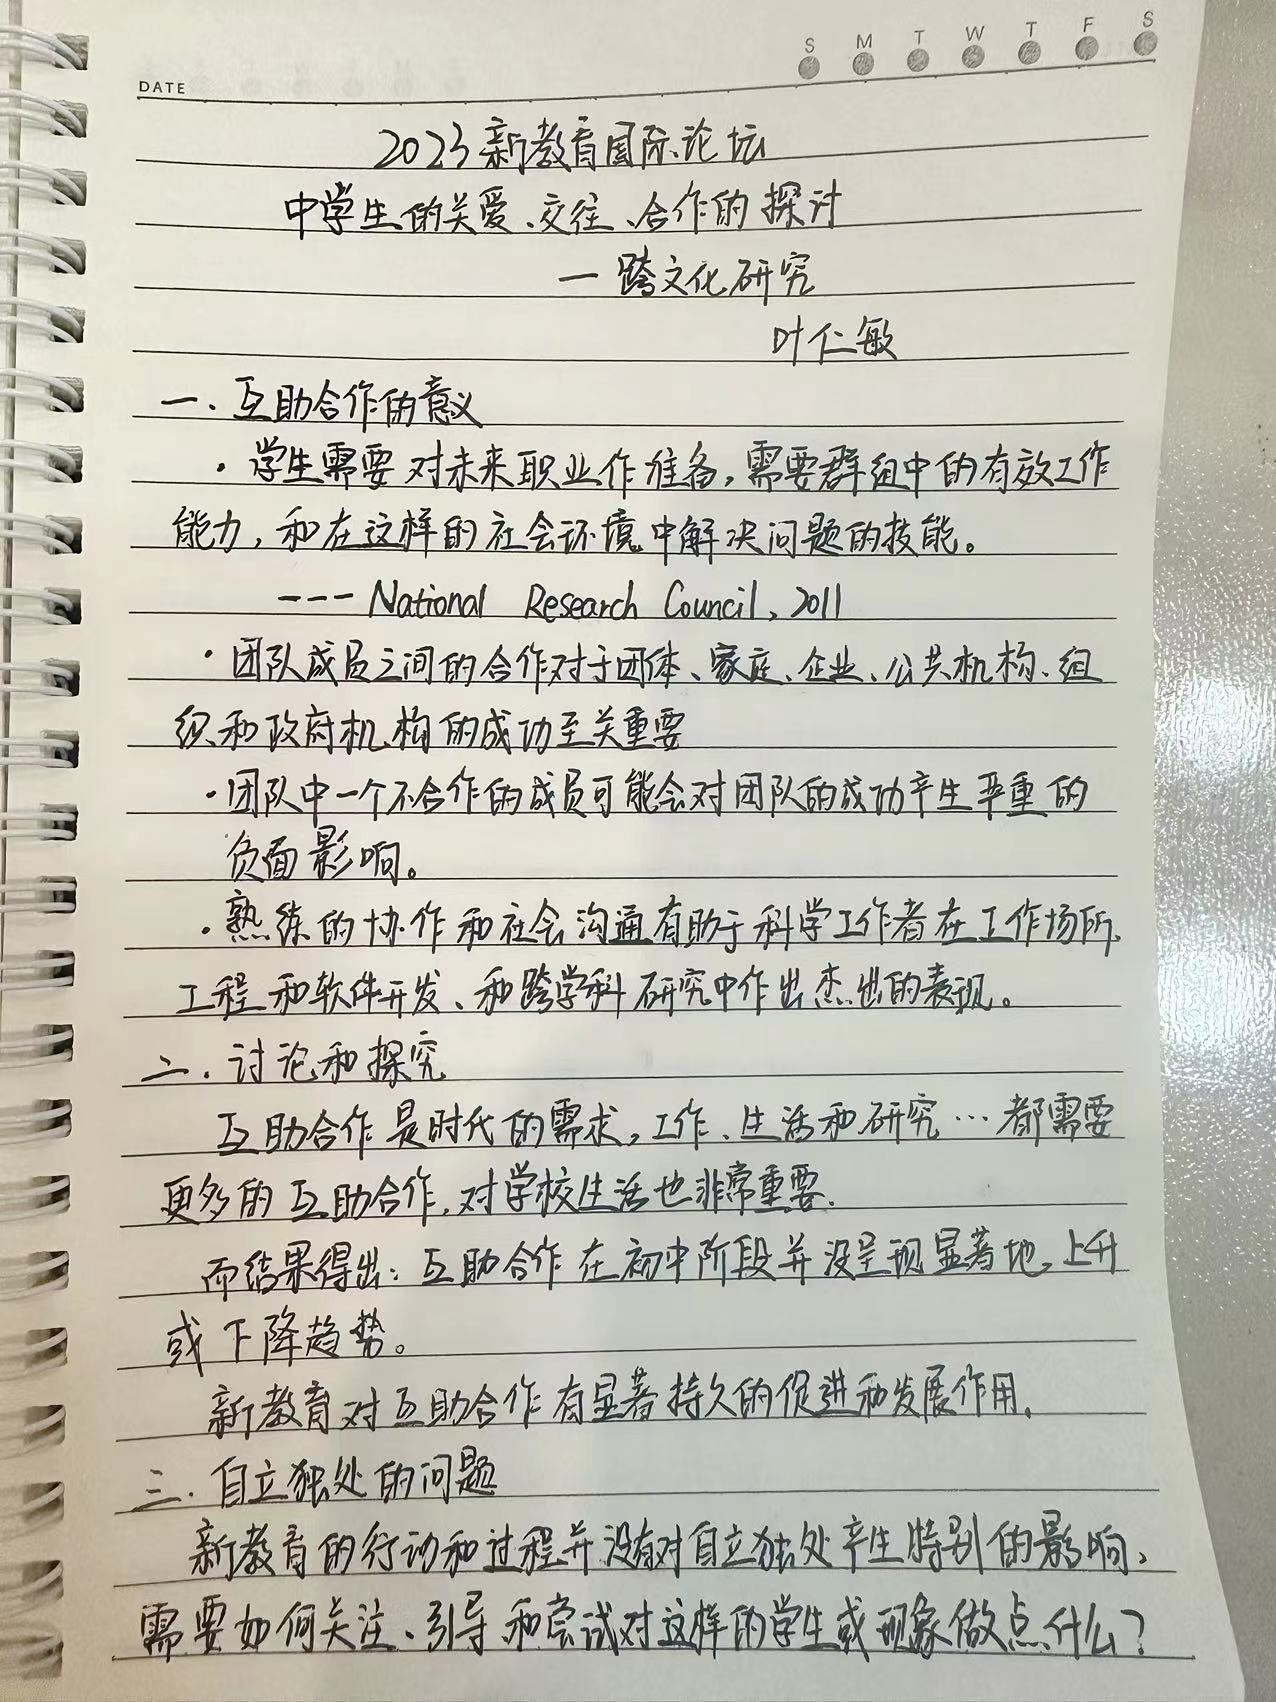 S M T W T F S
DATE
2023新教育国际论坛
中学生的关爱、交往、合作的探讨
一跨文化研究
叶仁敏
一.互助合作的意义
·学生需要对未来职业作准备,需要群组中的有效工作
能力,和在这样的社会环境中解决问题的技能。
---National Research Council, 2011
·团队成员之间的合作对于团体、家庭、企业、公共机构、组
织和政府机构的成功至关重要
·团队中一个不合作的成员可能会对团队的成功产生严重的
负面影响。
·熟练的协作和社会沟通有助于科学工作者在工作场所、
工程和软件开发、和跨学科研究中作出杰出的表现。
二.讨论和探究
互助合作是时代的需求,工作、生活和研究…都需要
更多的互助合作,对学校生活也非常重要.
而结果得出:互助合作在初中阶段并没呈现显著地,上升
或下降趋势。
新教育对互助合作有显著持久的促进和发展作用.
三.自立独处的问题
新教育的行动和过程并没有对自立独处产生特别的影响、
需要如何关注、引导和尝试对这样的学生或现象做点什么?